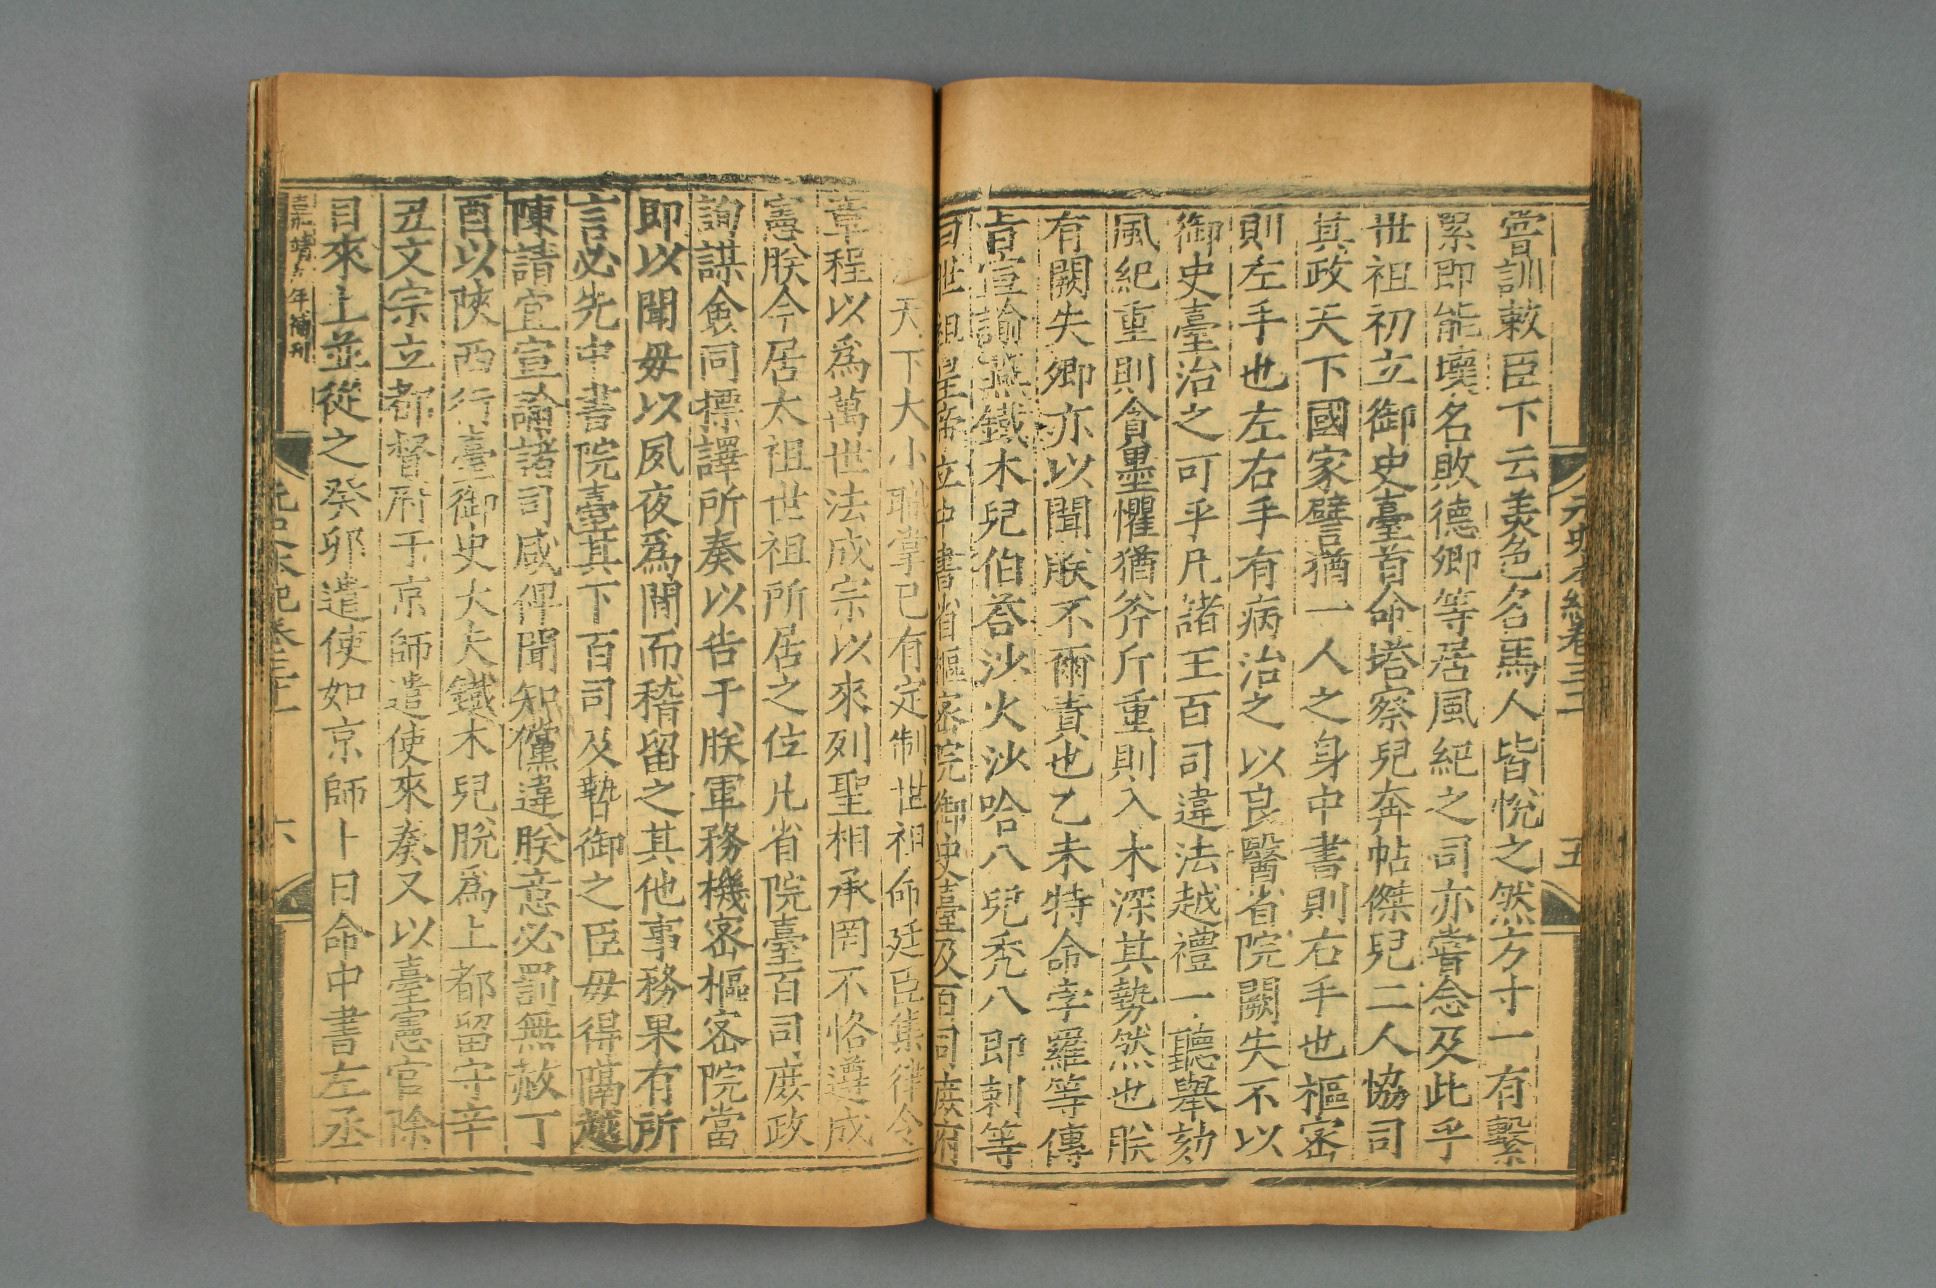 元史本紀卷三十一
五
嘗訓敕臣下云美色名馬人皆悅之然方寸一有繫
累即能壞名敗德卿等居風紀之司亦嘗念及此乎
世祖初立御史臺首命塔察兒奔帖傑兒二人協司
其政天下國家譬猶一人之身中書則右手也樞密
則左手也左右手有病治之以良醫省院闕失不以
御史臺治之可乎凡諸王百司違法越禮一聽舉劾
風紀重則貪墨懼猶斧斤重則入木深其勢然也朕
有闕失卿亦以聞朕不爾責也乙未特命孛羅等傳
旨宣諭燕鐵木兒伯荅沙火沙哈八兒禿八即剌等
曰世祖皇帝立中書省樞密院御史臺及百司庶府
天下大小職掌已有定制世祖命廷臣集律令
章程以為萬世法成宗以來列聖相承罔不恪遵成
憲朕今居太祖世祖所居之位凡省院臺百司庶政
詢謀僉同摽譯所奏以告于朕軍務機密樞密院當
即以聞毋以夙夜為間而稽留之其他事務果有所
言必先中書院臺其下百司及暬御之臣毋得隔越
陳請宜宣諭諸司咸俾聞知儻違朕意必罰無赦丁
酉以陝西行臺御史大夫鐵木兒脫為上都留守辛
丑文宗立都督府于京師遣使來奏又以臺憲官除
目來上並從之癸卯遣使如京師卜日命中書左丞
嘉靖年補刊
元史本紀卷三十一
六